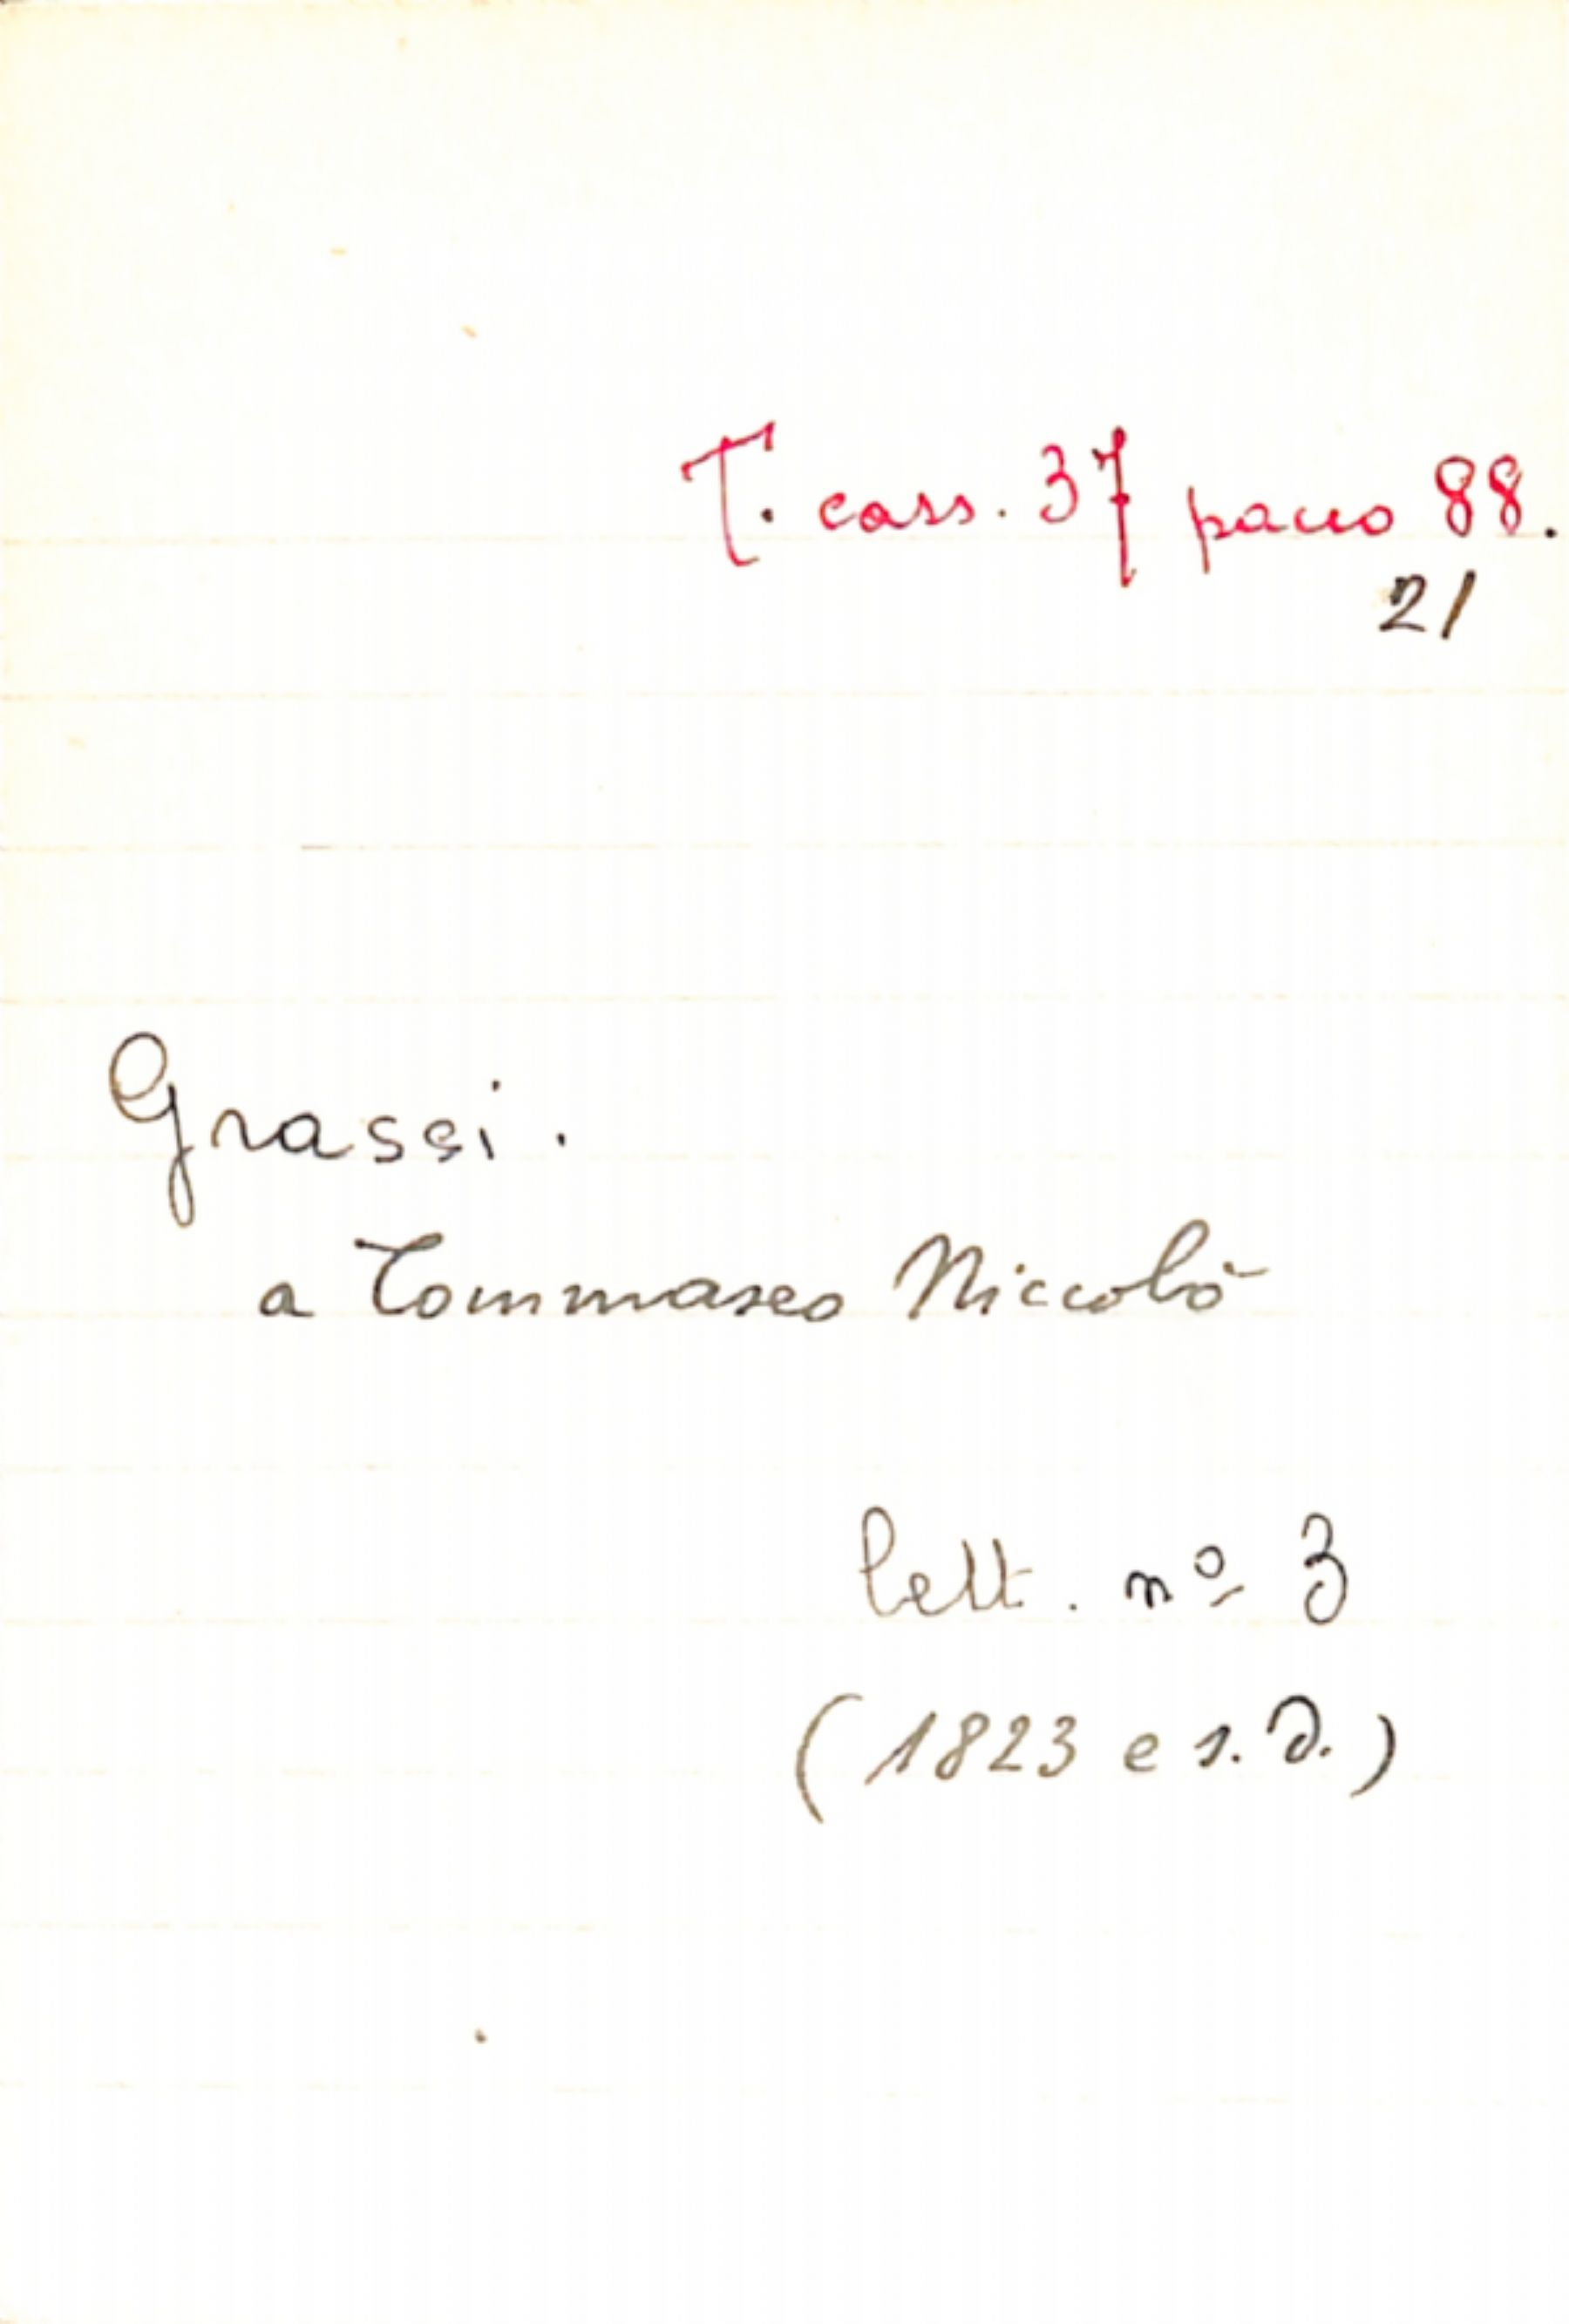 T. cass. 37 pacco 88.
21
Grassi.
a Tommaseo Niccolò
lett. nº 3
(1823 e s. d.)